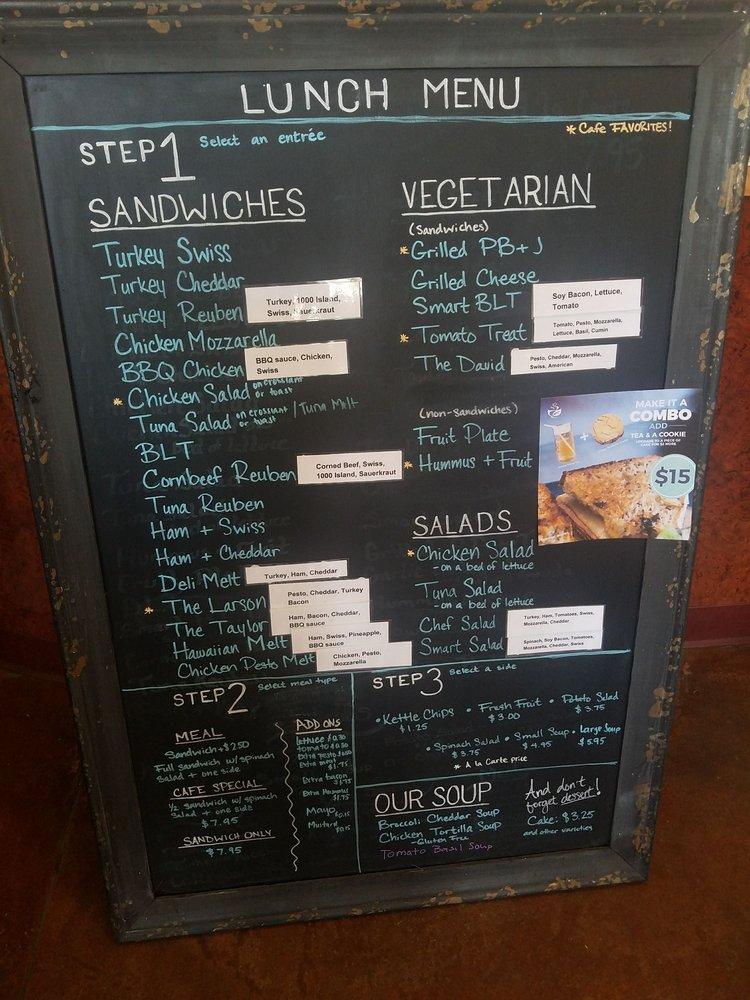 LUNCH MENU
* Cafe FAVORITES!
STEP 1 Select an entrée
SANDWICHES
Turkey Swiss
Turkey Cheddar
Turkey Reuben
Turkey, 1000 Island,
Swiss, Sauerkraut
Chicken Mozzarella
BBQ Chicken
BBQ sauce, Chicken,
Swiss
* Chicken Salad on croissant
or toast
Tuna Salad on croissant / Tuna Melt
or toast
BLT
Cornbeef Reuben
Corned Beef, Swiss,
1000 Island, Sauerkraut
Tuna Reuben
Ham + Swiss
Ham + Cheddar
Deli Melt
Turkey, Ham, Cheddar
* The Larson
Pesto, Cheddar, Turkey
Bacon
The Taylor
Ham, Bacon, Cheddar,
BBQ sauce
Hawaiian Melt
Ham, Swiss, Pineapple,
BBQ sauce
Chicken Pesto Melt
Chicken, Pesto,
Mozzarella
VEGETARIAN
(Sandwiches)
* Grilled PB+J
Grilled Cheese
Smart BLT
Soy Bacon, Lettuce,
Tomato
* Tomato Treat
Tomato, Pesto, Mozzarella,
Lettuce, Basil, Cumin
The David
Pesto, Cheddar, Mozzarella,
Swiss, American
(non-sandwiches)
Fruit Plate
* Hummus + Fruit
MAKE IT A
COMBO
ADD
TEA & A COOKIE
UPGRADE TO A PIECE OF
CAKE FOR $2 MORE
+
$15
SALADS
* Chicken Salad
- on a bed of lettuce
Tuna Salad
- on a bed of lettuce
Chef Salad
Turkey, Ham, Tomatoes, Swiss,
Mozzarella, Cheddar
Smart Salad
Spinach, Soy Bacon, Tomatoes,
Mozzarella, Cheddar, Swiss
STEP 2 Select meal type
MEAL
Sandwich + $2.50
Full sandwich w/ spinach
Salad + one side
CAFE SPECIAL
1/2 sandwich w/ spinach
Salad + one side
$7.95
SANDWICH ONLY
$7.95
ADD ONS
Lettuce
Tomato
Extra pesto
Extra meat
$1.75
Extra bacon
$1.75
Extra Hummus
$1.75
Mayo
Mustard
STEP 3 Select a side
• Kettle Chips
$1.25
• Fresh Fruit
$3.00
• Potato Salad
$3.75
• Spinach Salad
$3.75
• Small Soup
$4.95
• Large Soup
$5.95
* A la Carte price
OUR SOUP
Broccoli Cheddar Soup
Chicken Tortilla Soup
- Gluten Free
Tomato Basil Soup
And don't
forget dessert!
Cake: $3.25
and other varieties